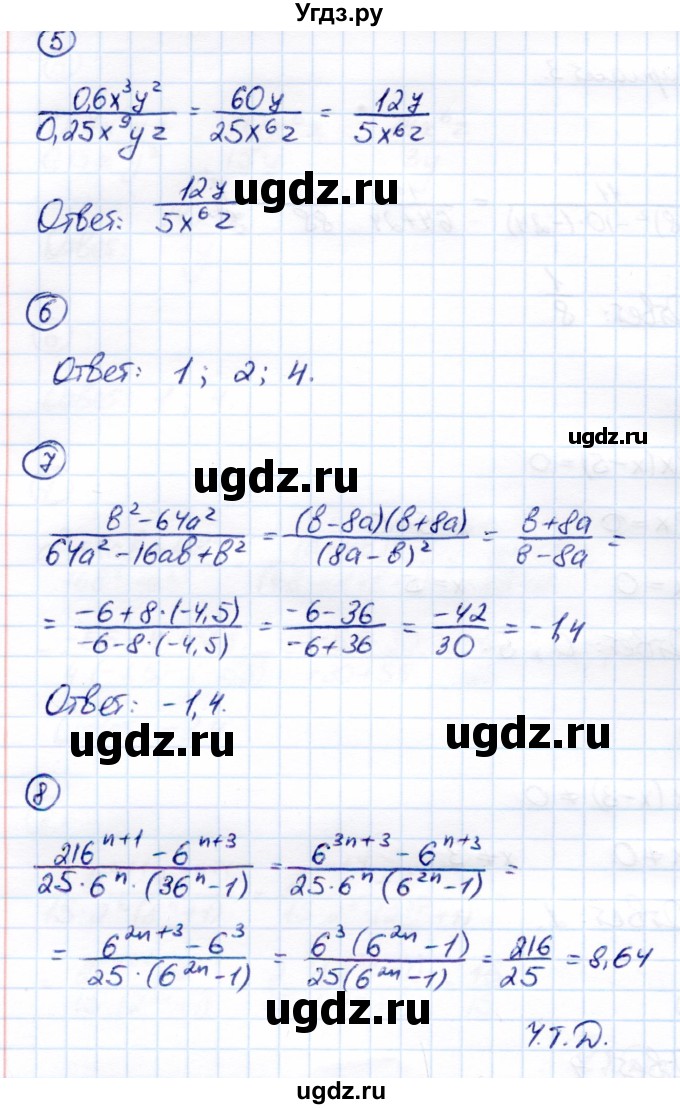 Угдз.ру
5
0,6x³y² / 0,25x⁹yz = 60y / 25x⁶z = 12y / 5x⁶z
Ответ: 12y / 5x⁶z
ugdz.ru
6
Ответ: 1; 2; 4.
ugdz.ru
7
ugdz.ru
в²-64а² / 64а²-16ав+в² = (в-8а)(в+8а) / (8а-в)² = в+8а / в-8а =
= -6+8·(-4,5) / -6-8·(-4,5) = -6-36 / -6+36 = -42 / 30 = -1,4
Ответ: -1,4.
ugdz.ru
ugdz.ru
8
216ⁿ⁺¹ - 6ⁿ⁺³ / 25·6ⁿ·(36ⁿ-1) = 6³ⁿ⁺³ - 6ⁿ⁺³ / 25·6ⁿ(6²ⁿ-1) =
= 6²ⁿ⁺³ - 6³ / 25·(6²ⁿ-1) = 6³(6²ⁿ-1) / 25(6²ⁿ-1) = 216 / 25 = 8,64
ugdz.ru
Ч.Т.Д.
ugdz.ru